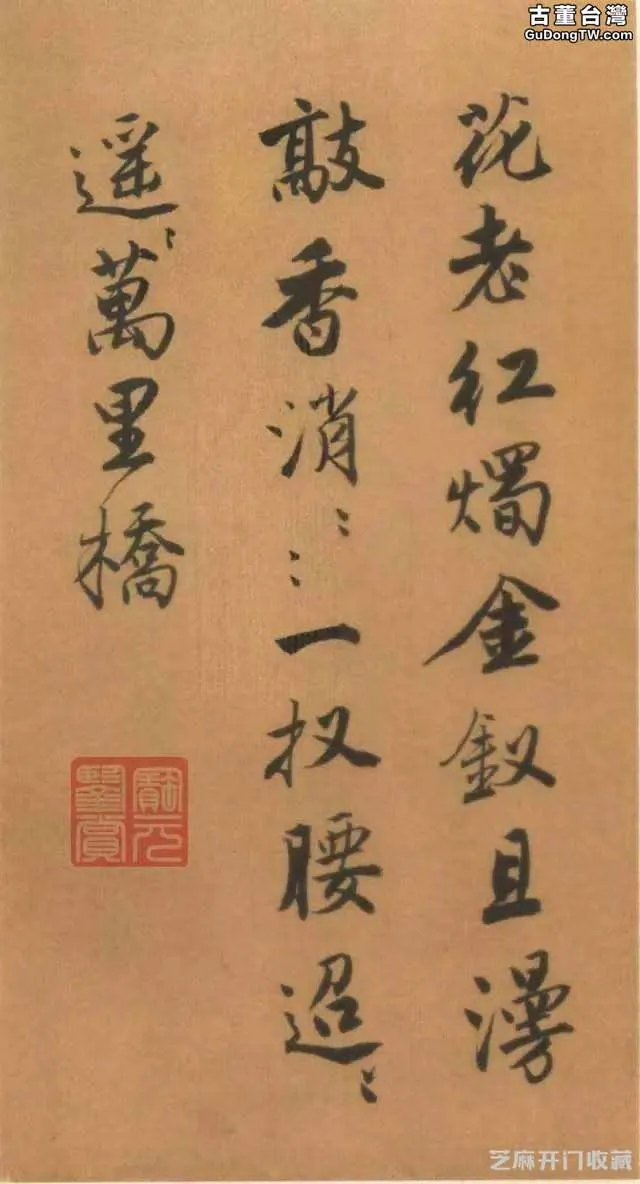 古董台灣
GuDongTW.com
花老红燭金釵且漫
敲香消〻〻一扠腰迢〻
遥〻萬里橋
元
鑒賞
芝麻开门收藏